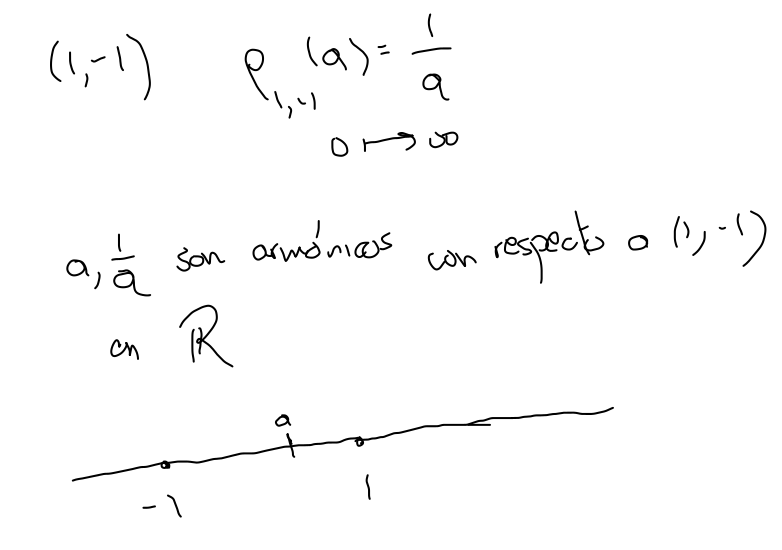 (1,-1) ρ_{1,-1}(a) = 1/a
0 ↦ ∞
a, 1/a son armónicos con respecto a (1,-1)
en ℝ
a
-1 1